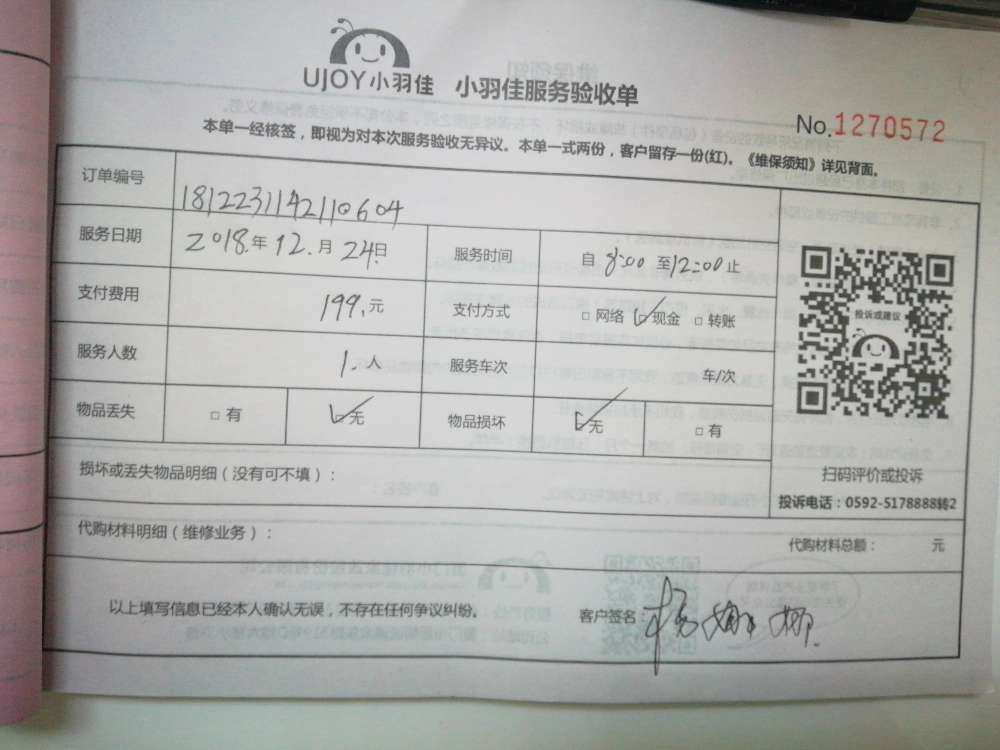 UJOY小羽佳 小羽佳服务验收单
No.1270572
本单一经核签，即视为对本次服务验收无异议。本单一式两份，客户留存一份(红)。《维保须知》详见背面。
订单编号 1812231142110604
服务日期 2018.年 12.月 24日 服务时间 自 8:00 至12:00止
支付费用 199.元 支付方式 □ 网络 ☑现金 □ 转账
投诉或建议
服务人数 1.人 服务车次 车/次
物品丢失 □ 有 ☑无 物品损坏 ☑无 □ 有
扫码评价或投诉
投诉电话：0592-5178888转2
损坏或丢失物品明细（没有可不填）：
代购材料明细（维修业务）： 代购材料总额： 元
以上填写信息已经本人确认无误，不存在任何争议纠纷。 客户签名 杨娜娜.